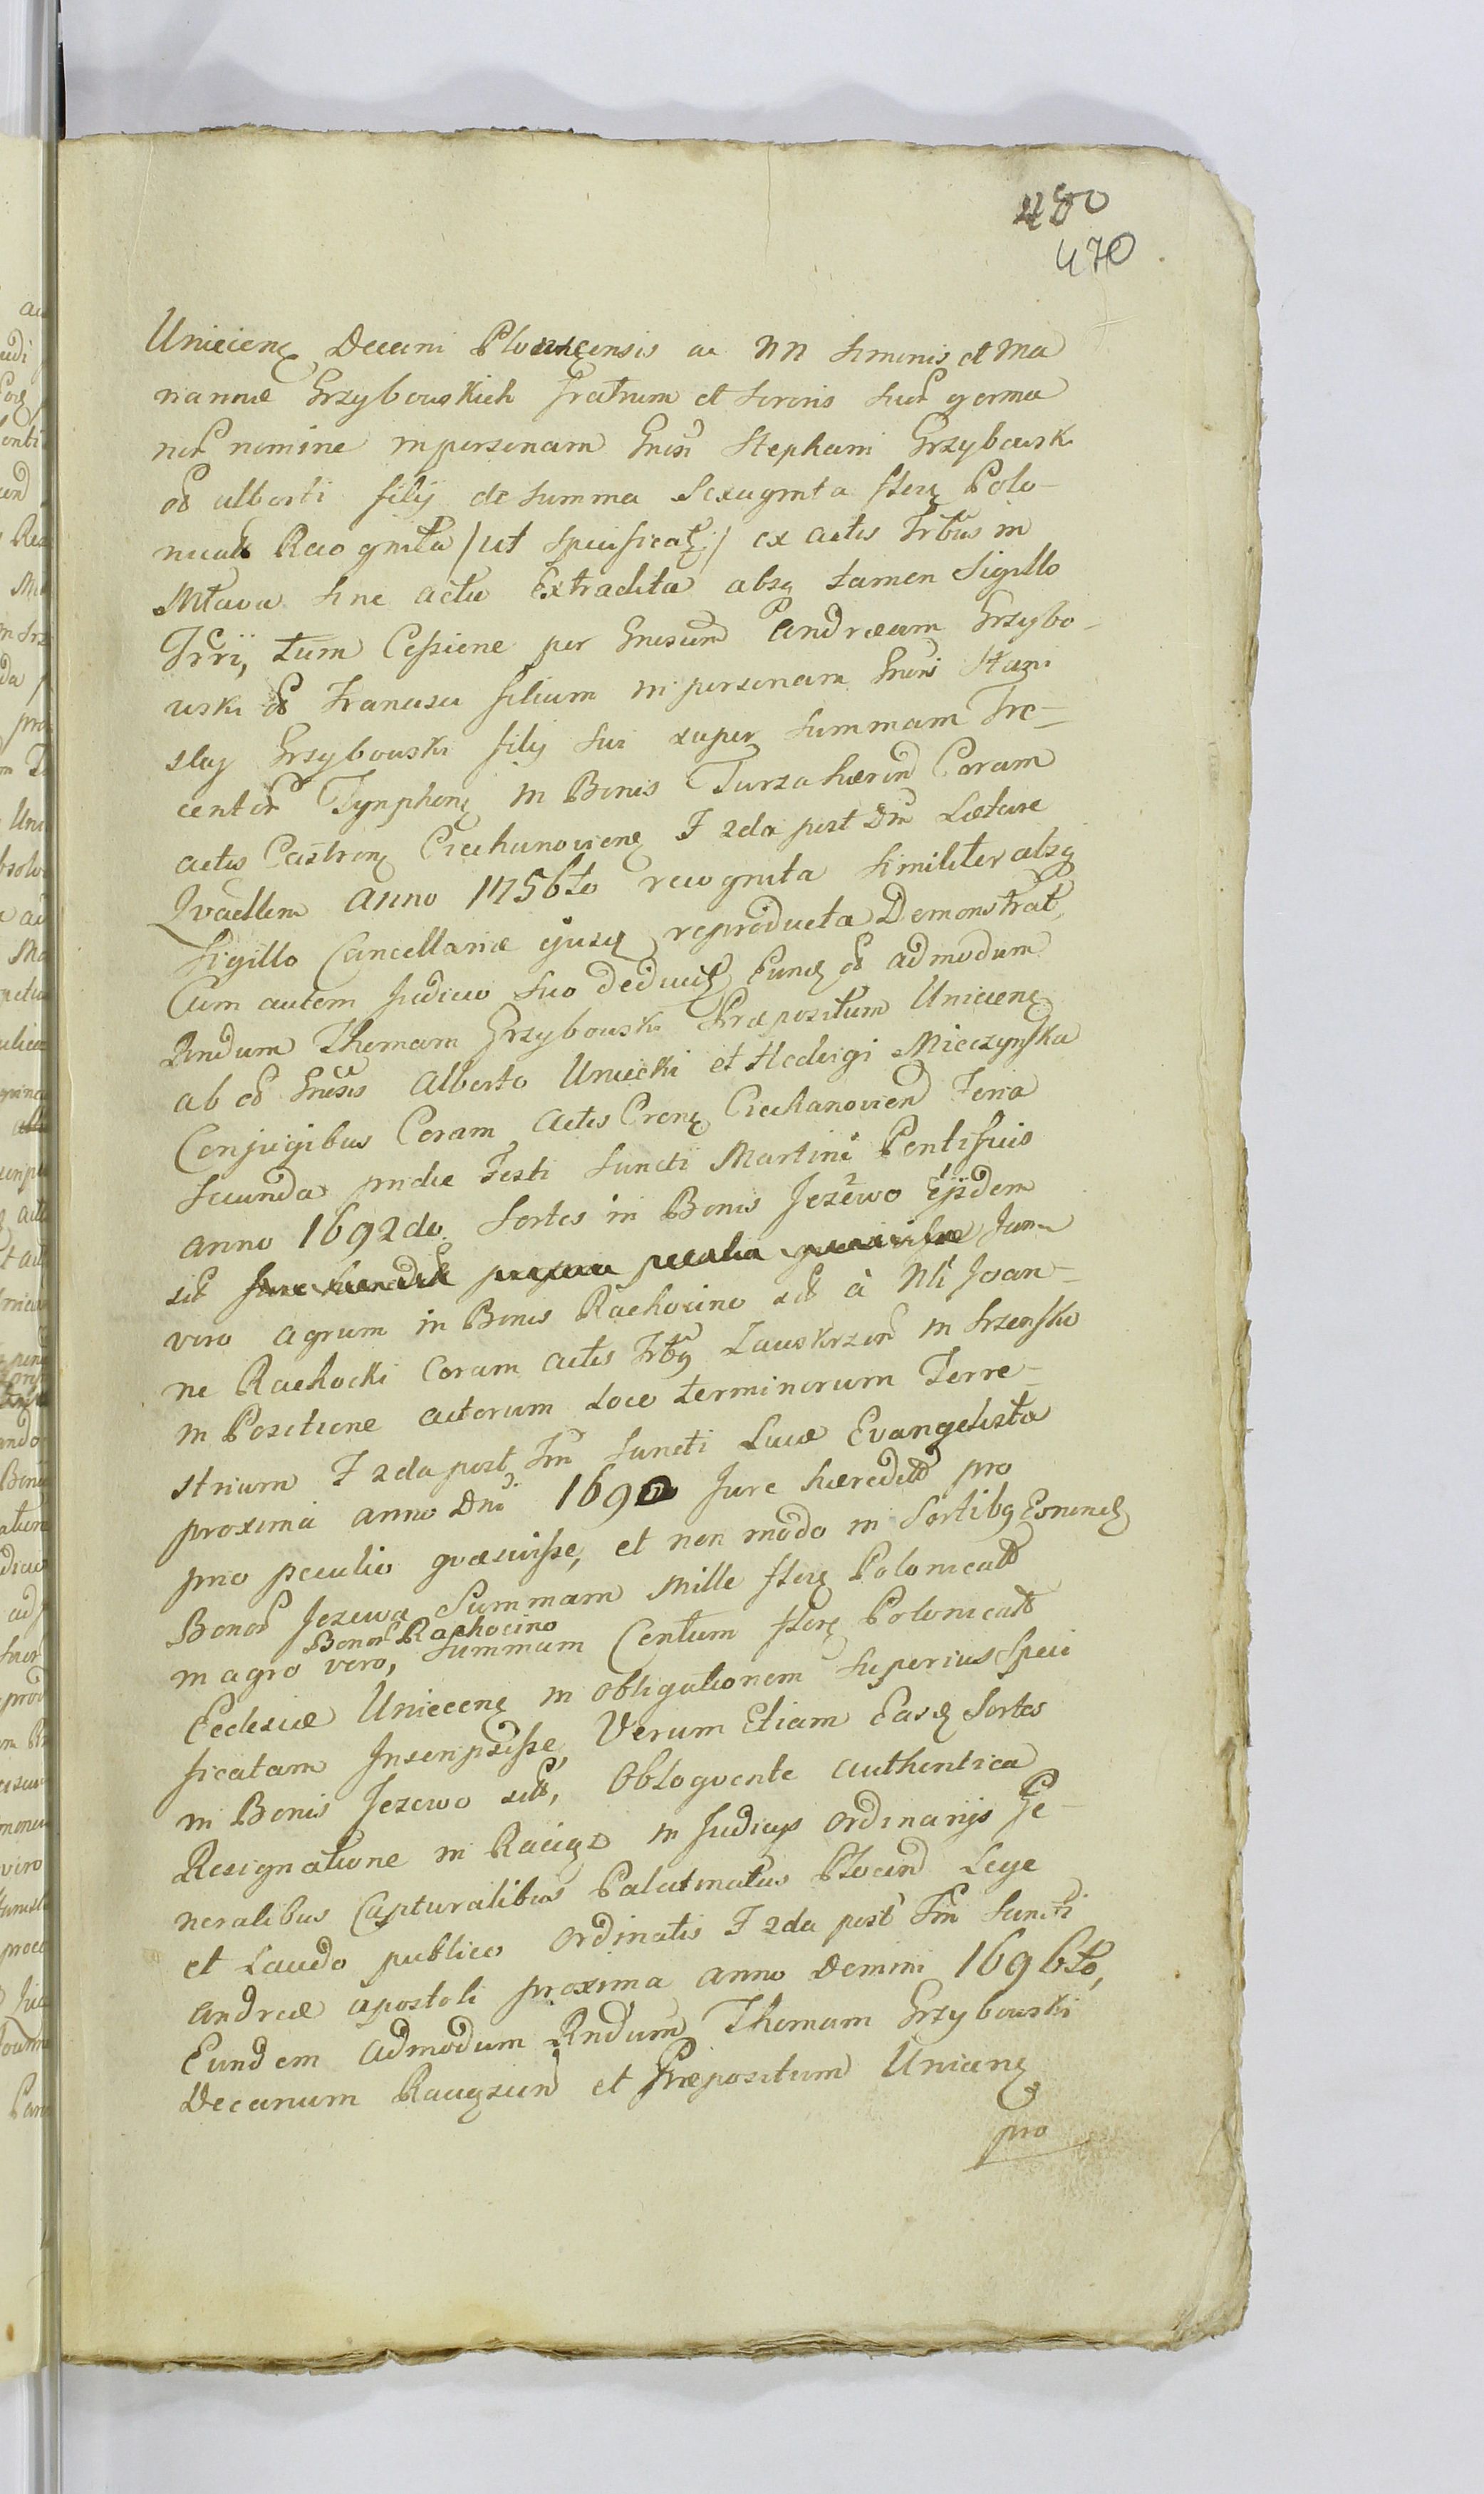 480
470
Unieciens Decani Plonscensis ac NN Simonis et Ma
riannæ Grzybowskich fratrum et Sororis suor germa
nor nomine in personam Gnosi Stephani Grzybowski
od alberti filij de summa Sexaginta flor Polo-
nical Recognita /ut specificat/ ex actis Trbus in
Mława sine actu Extradita absq tamen Sigillo
Trri, tum Cessione per Gnosum Andream Grzybo-
wski od Francisci filium in personam Gnosi Stani
slaj Grzybowski filij sui super summam Tre-
centor Tynphon in Bonis Turza hæren Coram
actis Castren Ciechanovien F 2da post Dm Lætare
Qvadlem anno 1756to recognita similiter absq
Sigillo Cancellariæ ejusq reproducta Demonstrat,
Cum autem Judicio suo deducit Eund od admodum
Rndum Thomam Grzybowski Præpositum Uniecien
ab od Gnosis Alberto Uniecki et Hedvigi Mieczynska
Conjugibus Coram Actis Cren Ciechanovien Feria
secunda pridie Festi Sancti Martini Pontificis
anno 1692do Sortes in Bonis Jezewo Ejsdem
sit
vero agrum in Bonis Rachocino sit à Nli Joan-
ne Rachocki Coram actis Trbq Zawskrzen in Srzensko
in Positione actorum loco terminorum Terre-
strium F 2da post Fm Sancti Lucæ Evangelista
proxima anno Dni 1690 Jure hæredit pro
prio peculio qvæsivisse, et non modo in Sortibq Esnund
Bonor Jezewa Summam Mille flor Polonicall
Bonor Rachocino
in agro vero, summam Centum flor Polonicall
Ecclesiæ Uniecien in obligationem superius speci
ficatam Inscripsisse, Verum Etiam Easd Sortes
in Bonis Jezewo sit, Obloqvente authentica
Resignatione in Raciąz in Judicijs ordinarijs Ge-
neralibus Capturalibus Palatinatus Plocen Lege
et Laudo publico ordinatis F 2da post Fm Sancti
Andreæ apostoli proxima anno Domini 1696to,
Eundem admodum Rndum Thomam Grzybowski
Decanum Raciąscien et Præpositum Uniecien
pro